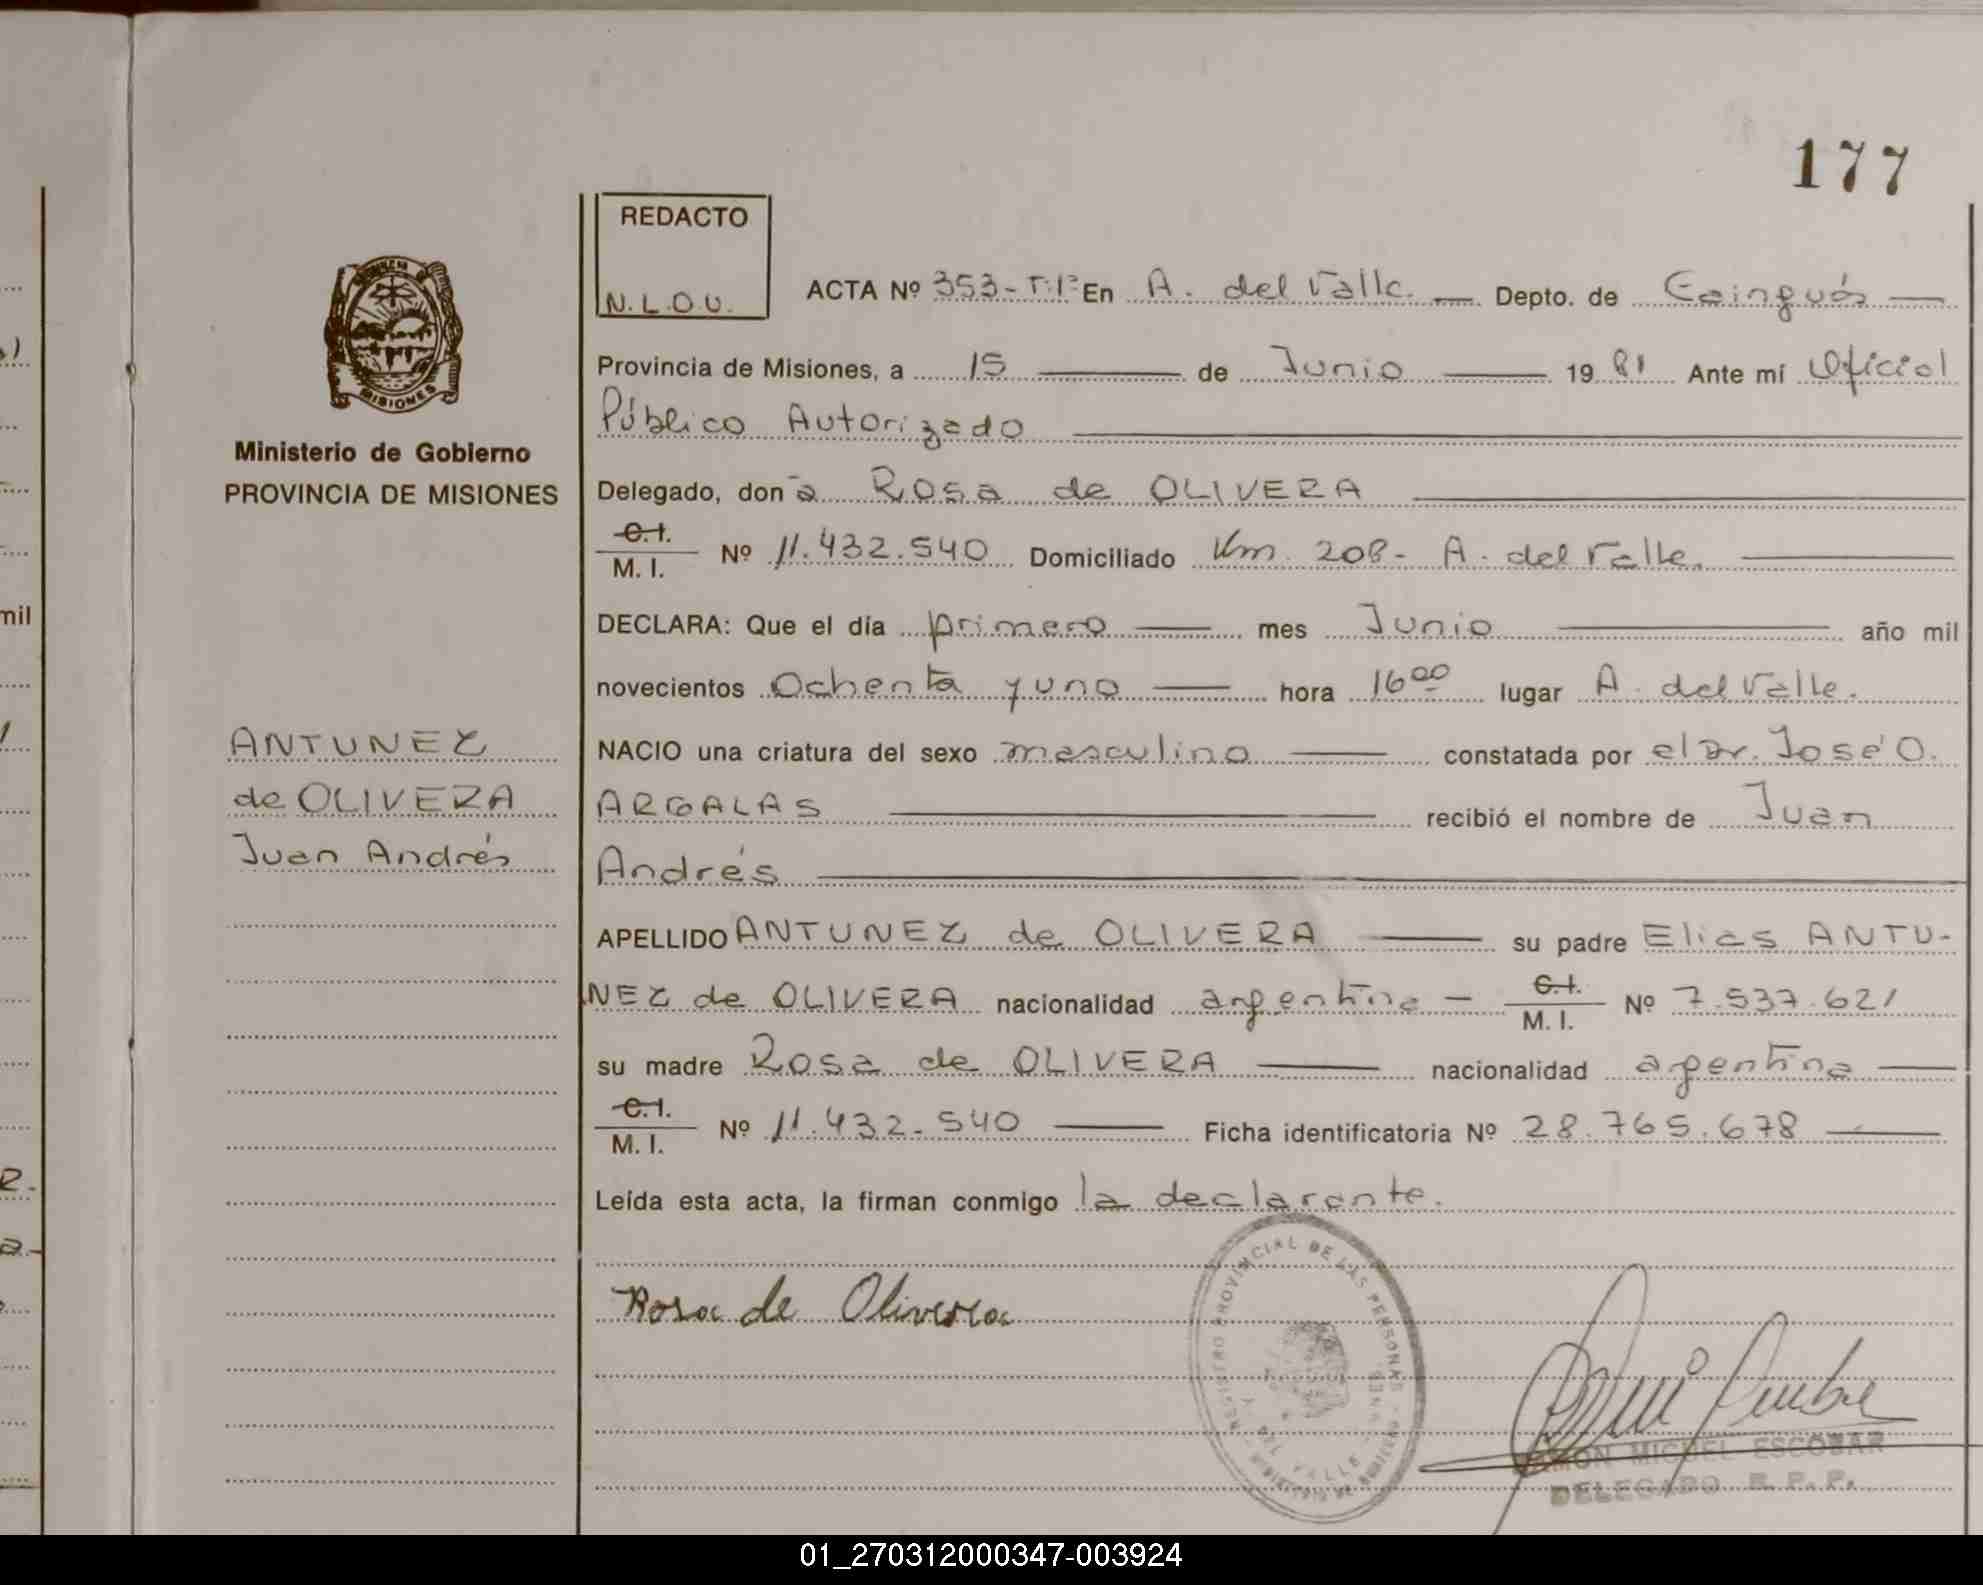 177
REDACTO
N.L.O.U.
ACTA Nº 353-T.1º En A. del Valle. Depto. de Cainguás
MISIONES
Provincia de Misiones, a 15 de Junio 19 81 Ante mí Oficial
Público Autorizado
Ministerio de Gobierno
PROVINCIA DE MISIONES
Delegado, don ̃a Rosa de OLIVERA
C.I.
M. I. Nº 11.432.540 Domiciliado Km. 208- A. del Valle.
DECLARA: Que el día primero mes Junio año mil
novecientos Ochenta y uno hora 16ºº lugar A. del Valle.
ANTUNEZ
de OLIVERA
Juan Andrés
NACIO una criatura del sexo masculino constatada por el Dr. José O.
ARGALAS recibió el nombre de Juan
Andrés
APELLIDO ANTUNEZ de OLIVERA su padre Elias ANTU-
NEZ de OLIVERA nacionalidad argentina - C.I. M. I. Nº 7.537.621
su madre Rosa de OLIVERA nacionalidad argentina
C.I.
M. I. Nº 11.432.540 Ficha identificatoria Nº 28.765.678
Leída esta acta, la firman conmigo la declarante.
Rosa de Olivera
REGISTRO PROVINCIAL DE LAS PERSONAS
RAMON MIGUEL ESCOBAR
DELEGADO R. P. P.
mil
01_270312000347-003924